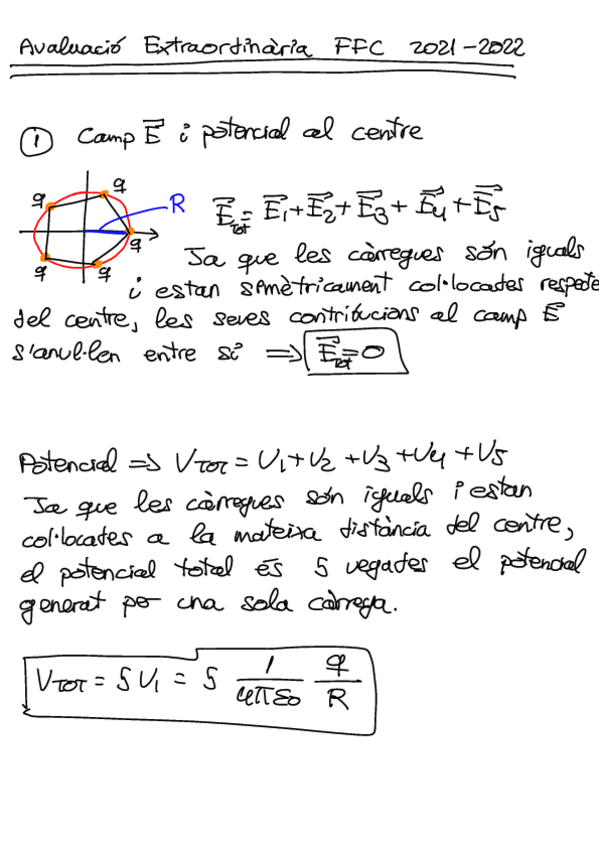 Avaluació Extraordinària FFC 2021-2022
① Camp E⃗ i potencial al centre
q q R q q q
E⃗Tot = E⃗1 + E⃗2 + E⃗3 + E⃗4 + E⃗5
Ja que les càrregues són iguals
i estan simètricament col·locades respecte
del centre, les seves contribucions al camp E⃗
s'anul·len entre si ⇒ E⃗Tot = 0
Potencial ⇒ VTOT = V1 + V2 + V3 + V4 + V5
Ja que les càrregues són iguals i estan
col·locades a la mateixa distància del centre,
el potencial total és 5 vegades el potencial
generat per una sola càrrega.
VTOT = 5 V1 = 5 1/(4πε0) q/R